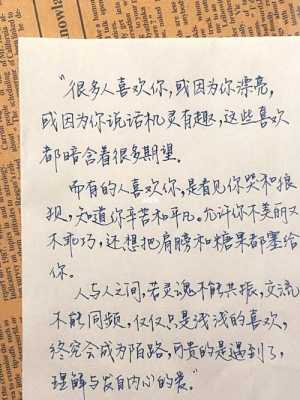 “很多人喜欢你，或因为你漂亮，
或因为你说话机灵有趣，这些喜欢
都暗含着很多期望。
而有的人喜欢你，是看见你哭和狼
狈，知道你辛苦和平凡。允许你不美丽又
不乖巧，还想把肩膀和糖果都塞给
你。
人与人之间，若灵魂不能共振，交流
不能同频，仅仅只是浅浅的喜欢，
终究会成为陌路，可贵的是遇到了，
理解与发自内心的爱。”